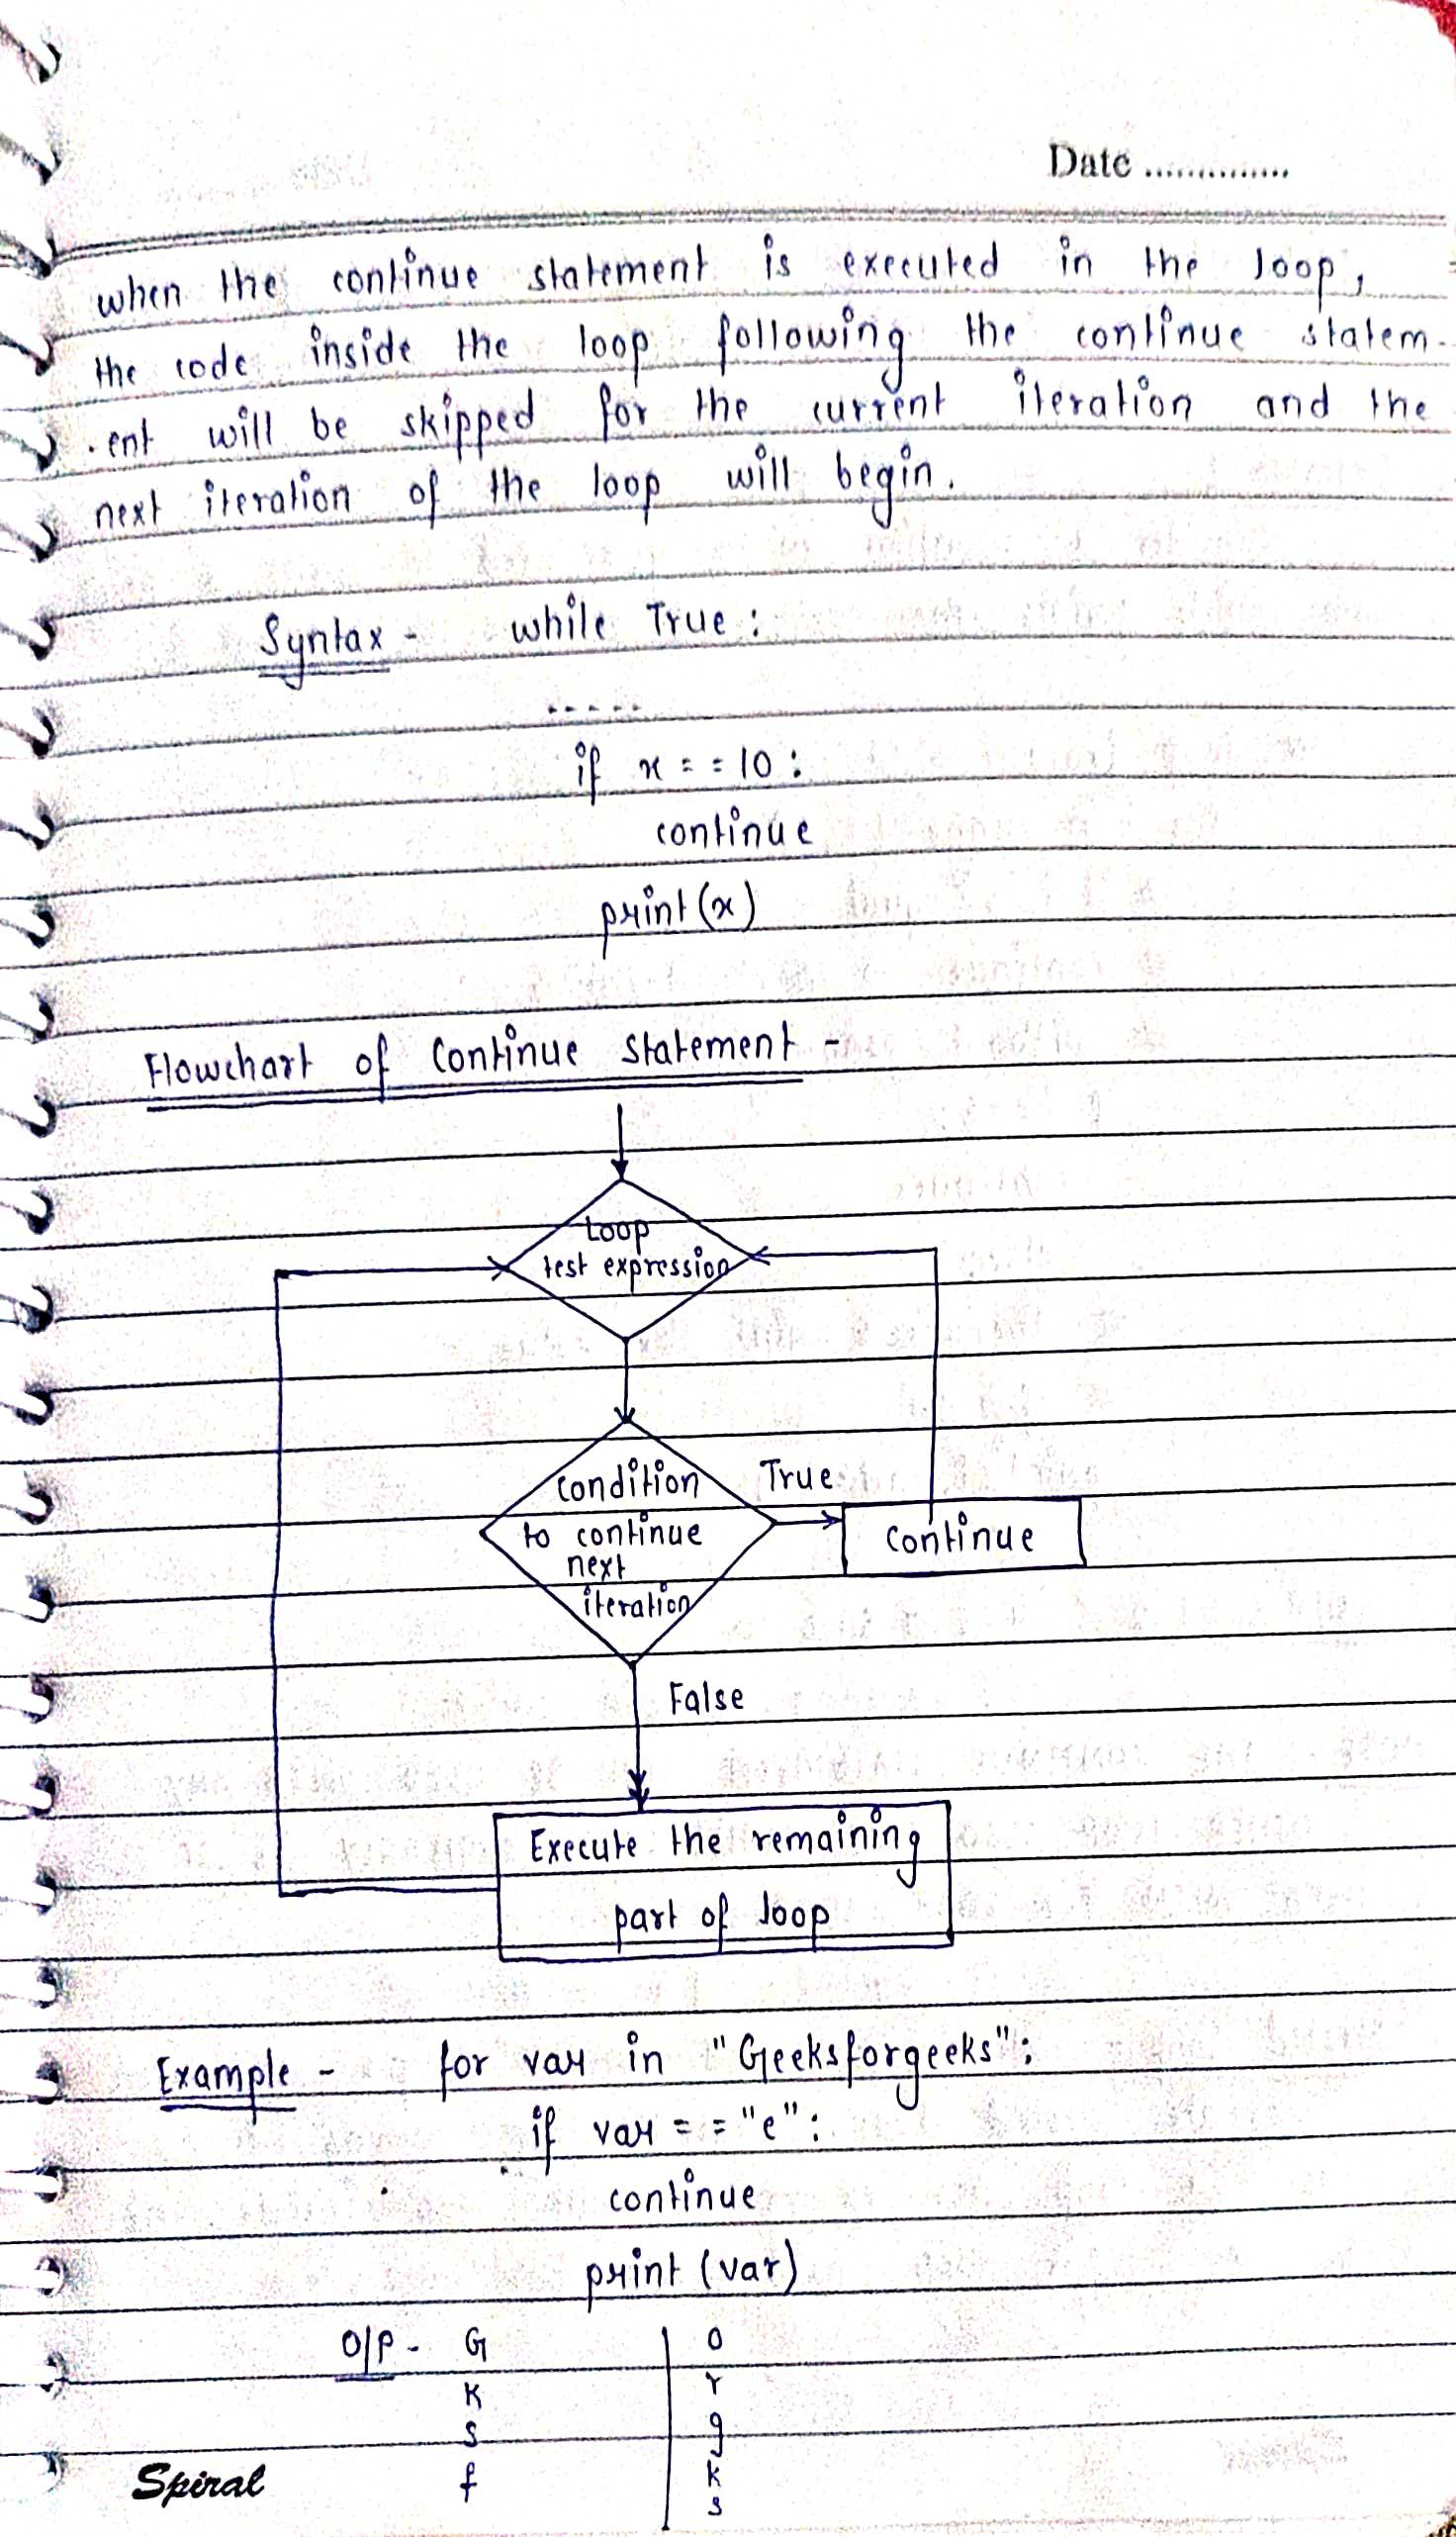 Date ..............
when the continue statement is executed in the loop,
the code inside the loop following the continue statem-
-ent will be skipped for the current iteration and the
next iteration of the loop will begin.
Syntax - while True :
-----
if x = = 10 :
continue
print (x)
Flowchart of Continue Statement -
Loop
test expression
condition
to continue
next
iteration
True
continue
False
Execute the remaining
part of loop
Example - for var in "Geeksforgeeks" :
if var = = "e" :
continue
print (var)
O/P - G | o
K | r
s | g
f | k
s
Spiral